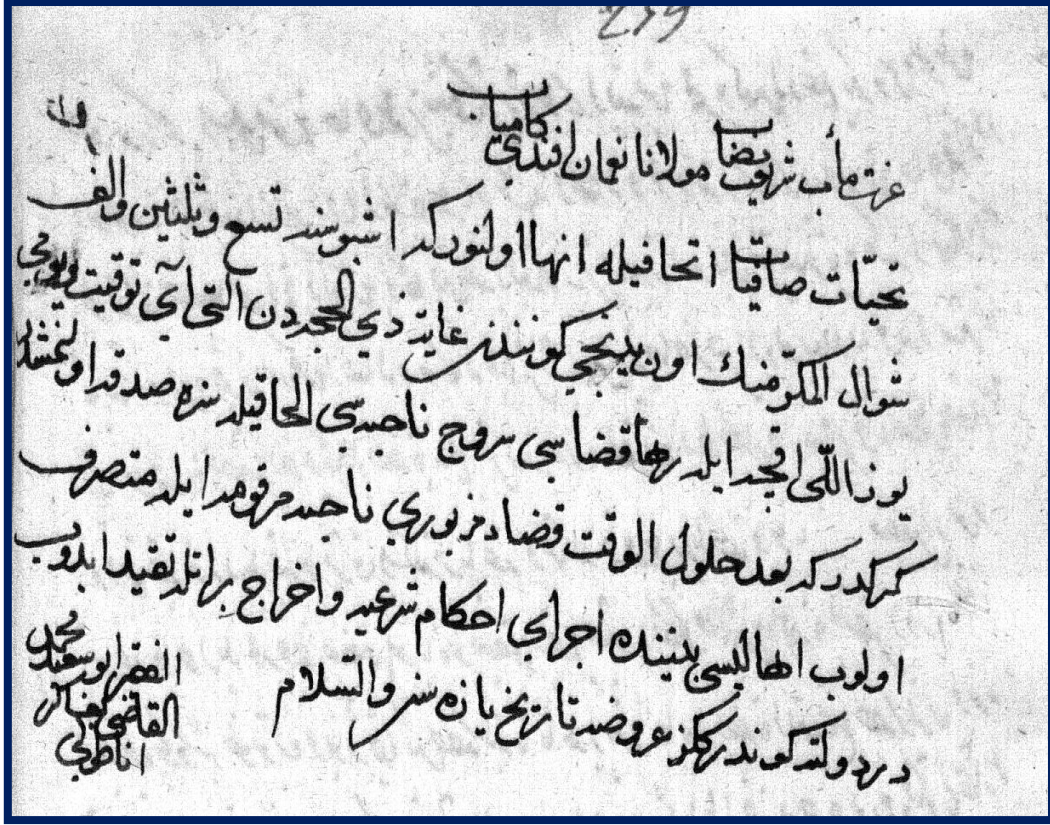 239
عزتمآب شريعتنصاب مولانا نعمان افندي كامياب
تحيّات صافيات اتحافيله انها اولنور كه اشبو سنه تسع وثلثين والف
شوال المكرمنك اون بشنجي كونندن غايۀ ذي الحجه دن التي آي توقيت
يوز اللي اقچه ايله رها قضاسي سروج ناحيه سي الحاقيله سزه صدقه اولنمشدر
كركدر كه بعد حلول الوقت قضاء مزبوري ناحيه مرقومه ايله متصرف
اولوب اهاليسي بيننده اجراي احكام شرعيه واخراج براته تقيد ايدوب
در دولته كوندرهكز عروضه تاريخ يازه سز والسلام
الفقير ابو سعيد محمد
القاضي بعساكر
اناطولي